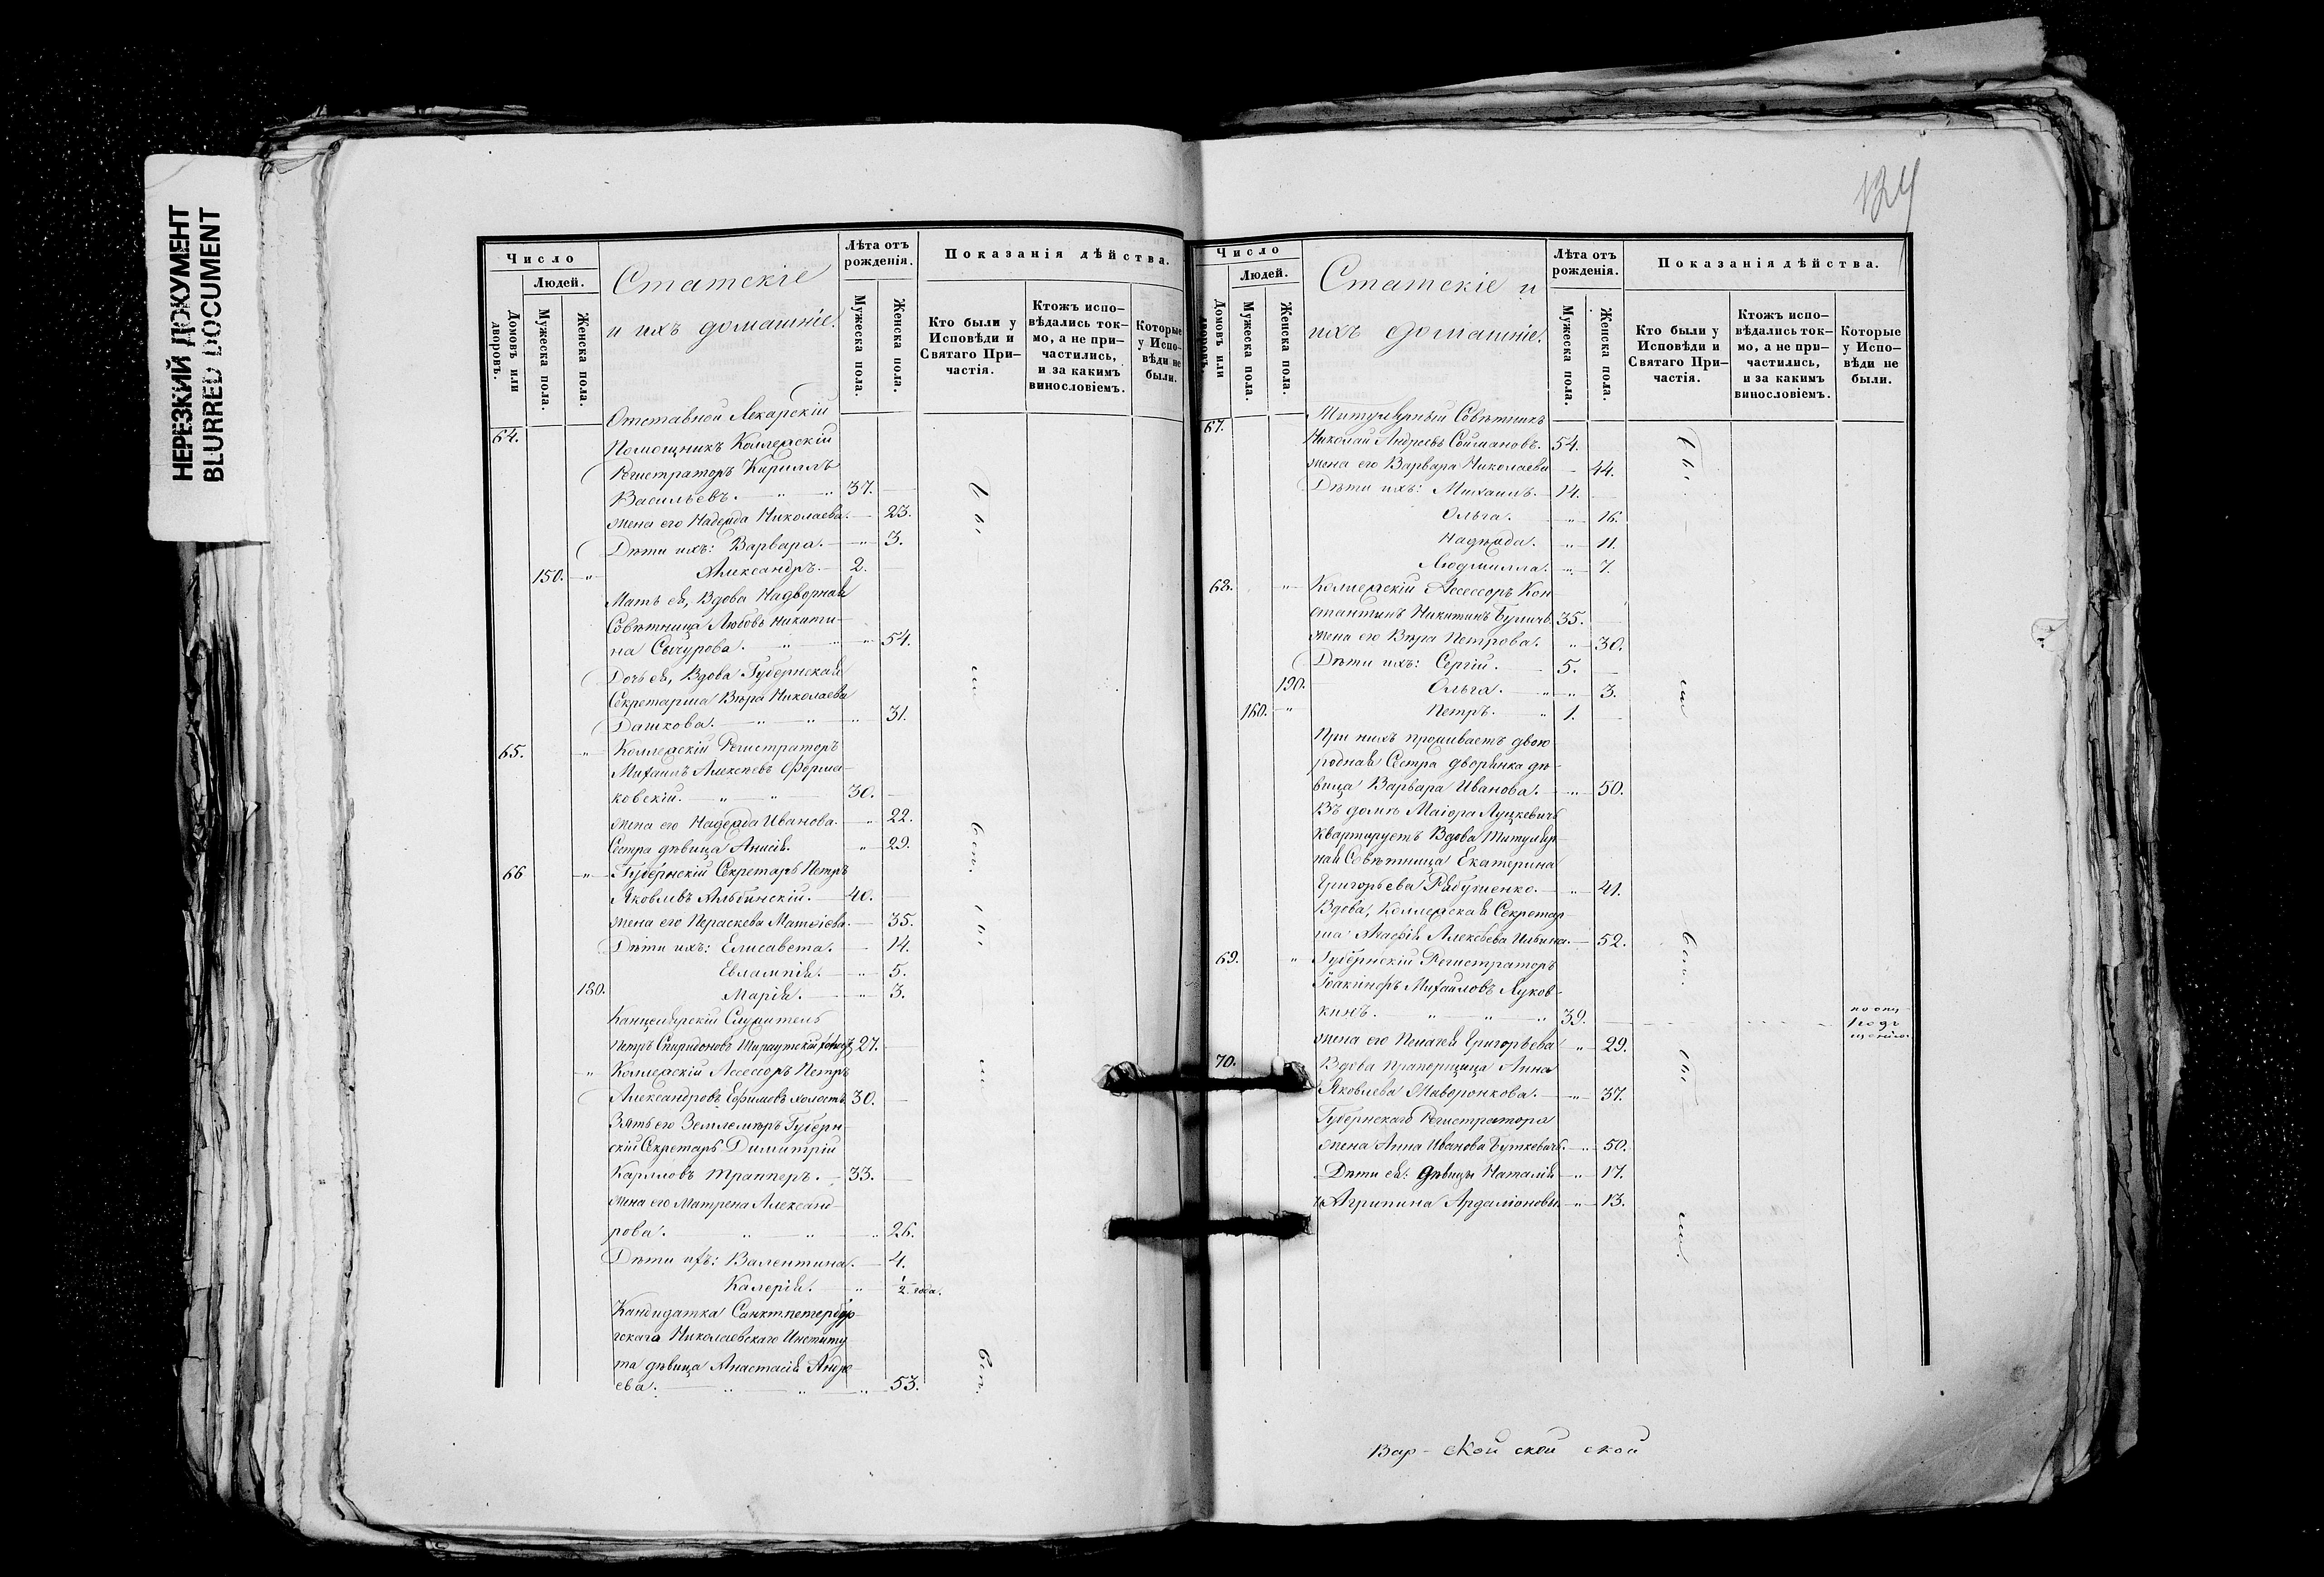 НЕРЕЗКИЙ ДОКУМЕНТ
BLURRED DOCUMENT
Число
Людей.
Домовъ или дворовъ.
Мужеска пола.
Женска пола.
Статскіе
и ихъ домашніе.
Лѣта отъ рожденія.
Мужеска пола.
Женска пола.
Показанія дѣйства.
Кто были у Исповѣди и Святаго Причастія.
Ктожъ исповѣдались токмо, а не причастились, и за какимъ винословіемъ.
Которые у Исповѣди не были.
64. Отставной Лекарскій
Помощникъ Коллежскій
Регистраторъ Кириллъ
Васильевъ. 37.
жена его Надежда Николаева. 23.
Дѣти ихъ: Варвара. 3.
150. Александръ. 2.
Мать ея, Вдова Надворная
Совѣтница Любовь Никити-
на Сычурова. 54.
Дочь ея, Вдова Губернская
Секретарша Вѣра Николаева
Дашкова. 31.
65. Коллежскій Регистраторъ
Михаилъ Алексѣевъ
ковскій. 30.
жена его Надежда Ивановa. 22.
Сестра дѣвица Анисія. 29.
66 Губернскій Секретарь Петръ
Яковлевъ Альбинскій. 40.
жена его Параскева Матѳіева. 35.
Дѣти ихъ: Елисавета. 14.
Евлампія. 5.
180. Марія. 3.
Канцелярскій Служитель
Петръ Спиридоновъ 27.
Коллежскій Ассесоръ Петръ
Александровъ Ефимовъ холостъ. 30.
Зять его Землемѣръ Губерн
скій Секретарь Димитрій
Карловъ Трапперъ. 33.
жена его Матрена Александ-
рова. 26.
Дѣти ихъ: Валентина. 4.
Калерія. 1/2 года.
Кандидатка Санктпетербур-
гскаго Николаевскаго Институ
та дѣвица Анастасія Андре-
ева. 53.
134
Число
Людей.
Домовъ или дворовъ.
Мужеска пола.
Женска пола.
Статскіе и
ихъ домашніе.
Лѣта отъ рожденія.
Мужеска пола.
Женска пола.
Показанія дѣйства.
Кто были у Исповѣди и Святаго Причастія.
Ктожъ исповѣдались токмо, а не причастились, и за какимъ винословіемъ.
Которые у Исповѣди не были.
67. Титулярный Совѣтникъ
Николай Андреевъ Соймановъ. 54.
жена его Варвара Николаева 44.
Дѣти ихъ: Михаилъ. 14.
Ольга. 16.
Надежда. 11.
Людмилла. 7.
68. Коллежскій Ассессоръ Кон
стантинъ Никитинъ Буличъ. 35.
жена его Вѣра Петрова. 30.
Дѣти ихъ: Сергій. 5.
190. Ольга. 3.
160. Петръ. 1.
При нихъ проживаетъ двою
родная Сестра дворянка дѣ-
вица Варвара Иванова. 50.
Въ домѣ Маіора Луцкевичъ
квартируетъ Вдова Титуляр-
ная Совѣтница Екатерина
Григорьева Рябушенко. 41.
Вдова, Коллежская Секретар-
ша Агаѳія Алексѣева Ильина. 52.
69. Губернскій Регистраторъ
Іоакинфъ Михайловъ Луков-
кинъ. 39.
жена его Пелагея Григорьева 29.
70. Вдова Прапорщица Анна
Яковлева Маворонкова. 37.
Губернскаго Регистратора
жена Анна Иванова Буткевичъ. 50.
Дѣти ея: дѣвицы Наталія 17.
и Агрипина Ардаліоновы. 13.
Вар - ской ской ской